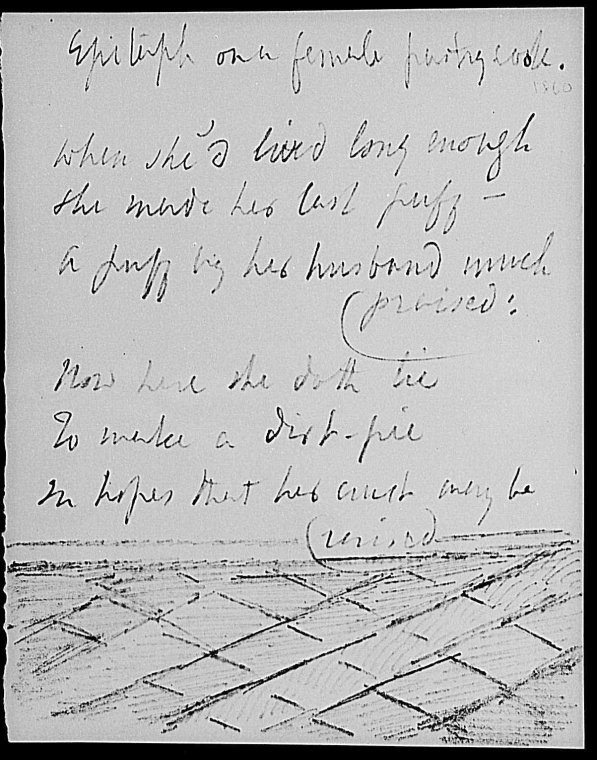 Epitaph on a female pastrycook.
1860
When she'd lived long enough
She made her last puff —
A puff by her husband much
(praised:
Now here she doth lie
To make a dirt-pie
In hopes that her crust may be
(raised